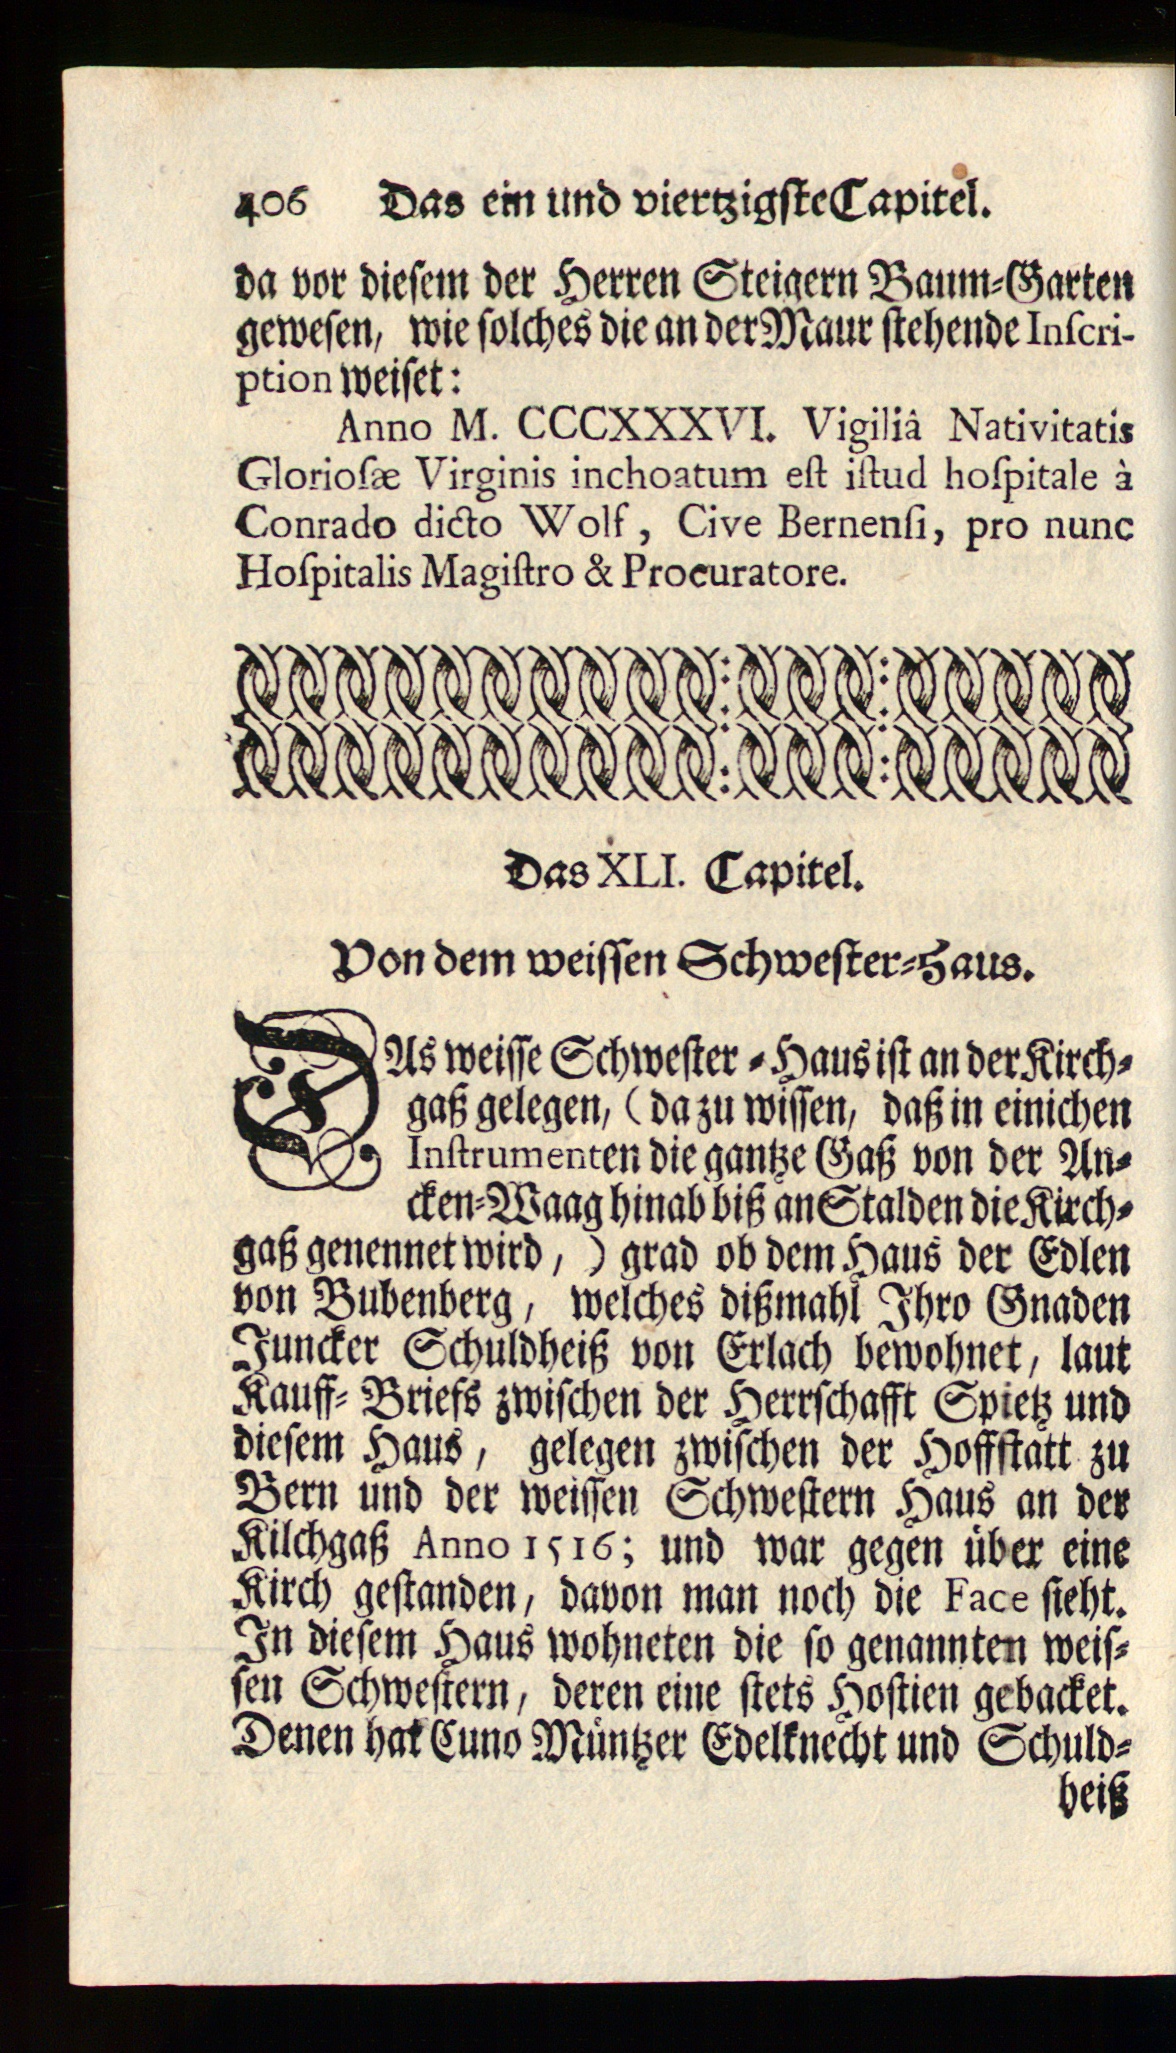 406 Das ein und viertzigste Capitel.
da vor diesem der Herren Steigern Baum-Garten
gewesen, wie solches die an der Maur stehende Inſcri-
ption weiset:
Anno M. CCCXXXVI. Vigiliâ Nativitatis
Glorioſæ Virginis inchoatum eſt iſtud hoſpitale à
Conrado dicto Wolf, Cive Bernenſi, pro nunc
Hoſpitalis Magiſtro & Procuratore.
Das XLI. Capitel.
Von dem weiſſen Schweſter-Haus.
DAs weiſſe Schweſter-Haus iſt an der Kirch-
gaß gelegen, (da zu wiſſen, daß in einichen
Inſtrumenten die gantze Gaß von der An-
cken-Waag hinab biß an Stalden die Kirch-
gaß genennet wird, ) grad ob dem Haus der Edlen
von Bubenberg, welches dißmahl Ihro Gnaden
Juncker Schuldheiß von Erlach bewohnet, laut
Kauff-Briefs zwiſchen der Herrſchafft Spietz und
dieſem Haus, gelegen zwiſchen der Hoffſtatt zu
Bern und der weiſſen Schweſtern Haus an der
Kilchgaß Anno 1516; und war gegen über eine
Kirch geſtanden, davon man noch die Face ſieht.
In dieſem Haus wohneten die ſo genannten weiſ-
ſen Schweſtern, deren eine ſtets Hoſtien gebacket.
Denen hat Cuno Müntzer Edelknecht und Schuld-
heiß